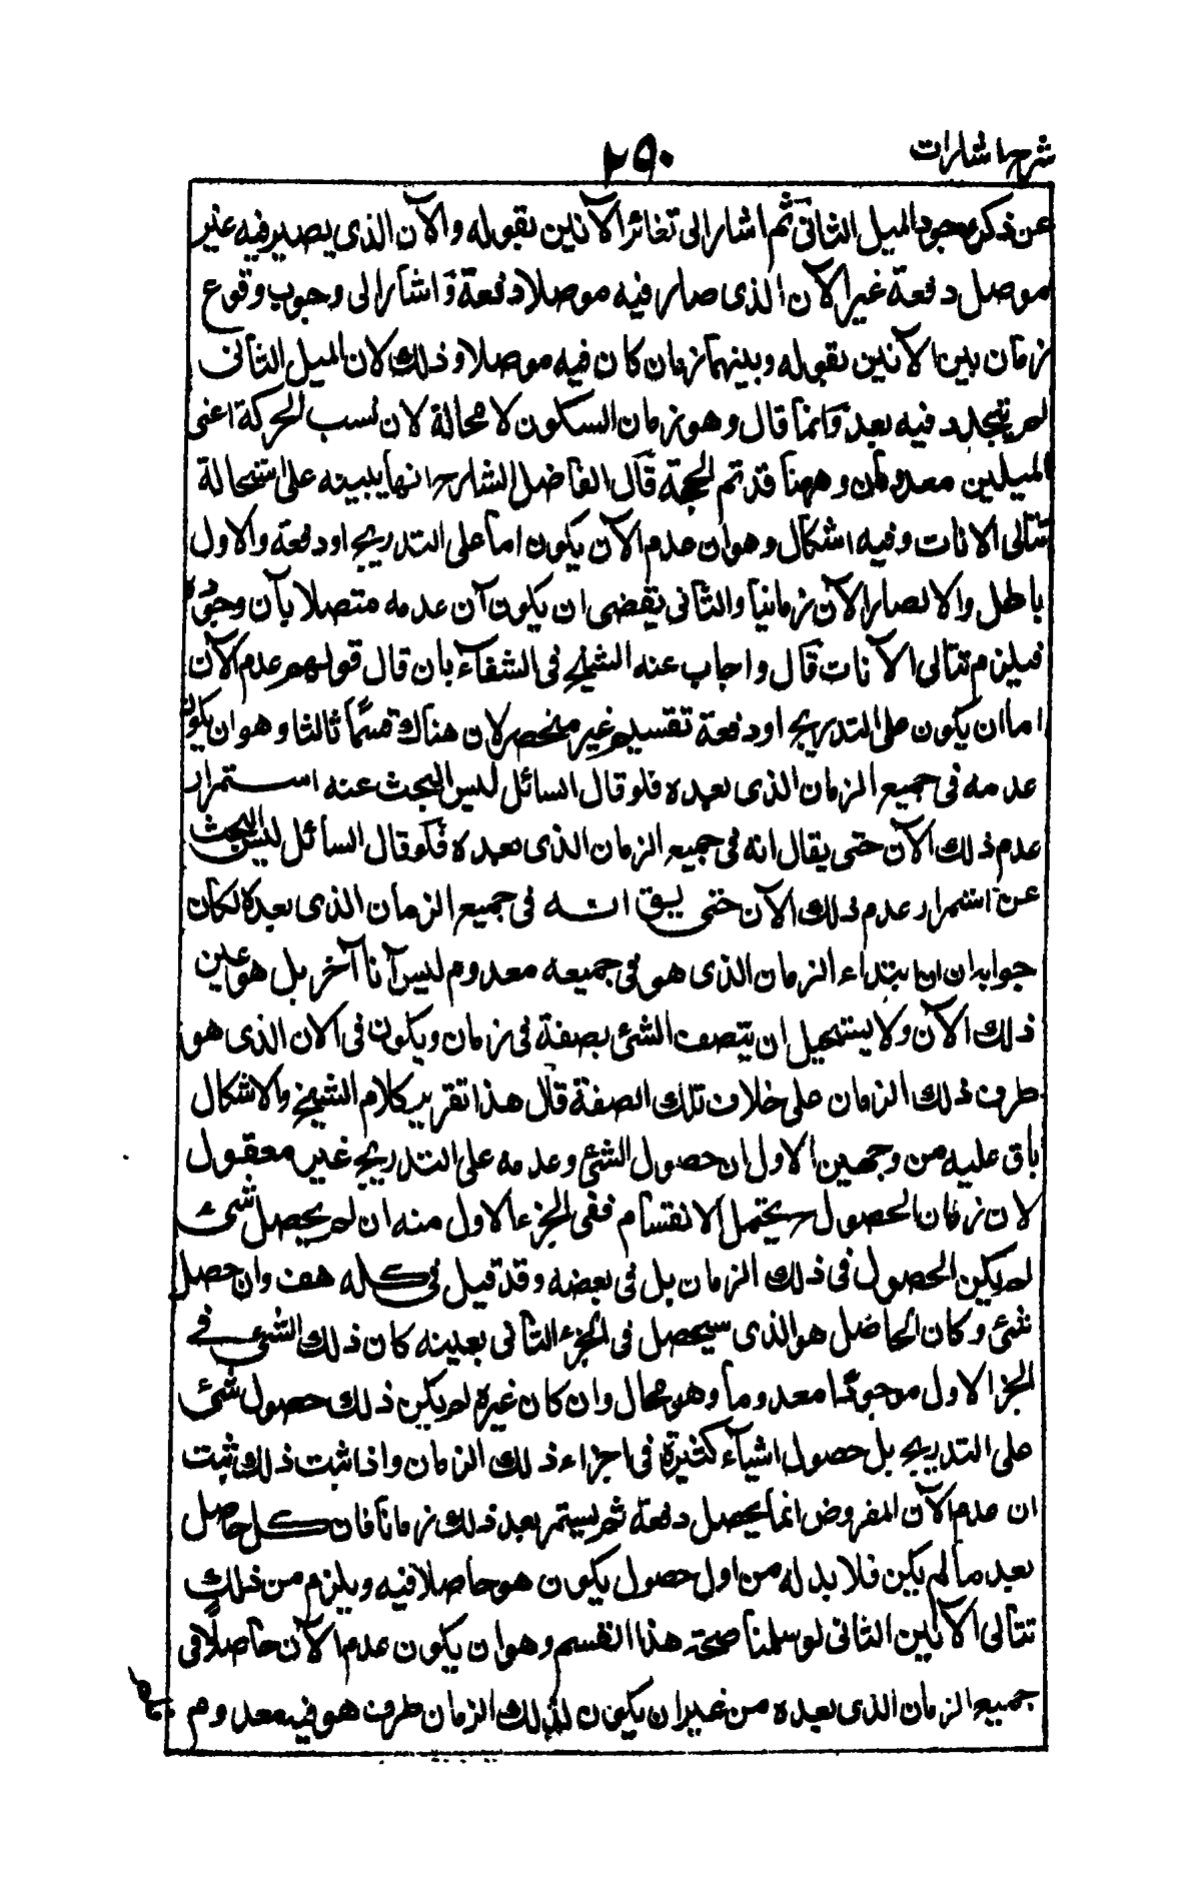 شرح اشارات
٢٩٠
عن ذكر وجود الميل الثانى ثم اشار الى تغائر الآنين بقوله والآن الذى يصير فيه غير
موصل دفعة غير الآن الذى صار فيه موصلا دفعة و اشار الى وجوب وقوع
زمان بين الآنين بقوله وبينهما زمان كان فيه موصلا وذلك لان الميل الثانى
لم يتجدد فيه بعد و انما قال وهو زمان السكون لا محالة لان سبب الحركة اعنى
الميلين معدومان وههنا قد تم الحجة قال الفاضل الشارح انها يبينه على استحالة
تتالى الانات وفيه اشكال وهو ان عدم الآن يكون اما على التدريج او دفعة والاول
باطل والا لصار الآن زمانيا والثانى يقضى ان يكون آن عدمه متصلا بآن وجوده
فيلزم تتالى الآنات قال واجاب عنه الشيخ فى الشفآء بان قال قولهم عدم الآن
اما ان يكون على التدريج او دفعة تقسيم غير منحصر لان هناك قسما ثالثا وهو ان يكون
عدمه فى جميع الزمان الذى بعده فلو قال السائل ليس البحث عنه استمرار
عدم ذلك الآن حتى يقال انه فى جميع الزمان الذى بعده فلو قال السآئل ليس البحث
عن استمرار عدم ذلك الآن حتى يق انه فى جميع الزمان الذى بعده لكان
جوابه ان ابتداء الزمان الذى هو فى جميعه معدوم ليس آنا آخر بل هو عين
ذلك الآن ولا يستحيل ان يتصف الشئ بصفة فى زمان ويكون فى الان الذى هو
طرف ذلك الزمان على خلاف تلك الصفة قال هذا تقرير كلام الشيخ والاشكال
باق عليه من وجهين الاول ان حصول الشئ وعدمه على التدريج غير معقول
لان زمان الحصول ح يحتمل الانقسام ففى الجزء الاول منه ان لم يحصل شئ
لم يكن الحصول فى ذلك الزمان بل فى بعضه وقد قيل فى كله هف وان حصل
شئ وكان الحاصل هو الذى سيحصل فى الجزء الثانى بعينه كان ذلك الشئ فى
الجزء الاول موجودا معدوما وهو محال وان كان غيره لم يكن ذلك حصول شئ
على التدريج بل حصول اشيآء كثيرة فى اجزاء ذلك الزمان واذا ثبت ذلك ثبت
ان عدم الآن المفروض انما يحصل دفعة ثم يستمر بعد ذلك زمانا فان كل حاصل
بعد ما لم يكن فلا بد له من اول حصول يكون هو حاصلا فيه ويلزم من ذلك
تتالى الآنين الثانى لو سلمنا صحة هذا القسم وهو ان يكون عدم الآن حاصلا فى
جميع الزمان الذى بعده من غير ان يكون لذلك الزمان طرف هو فيه معدوم